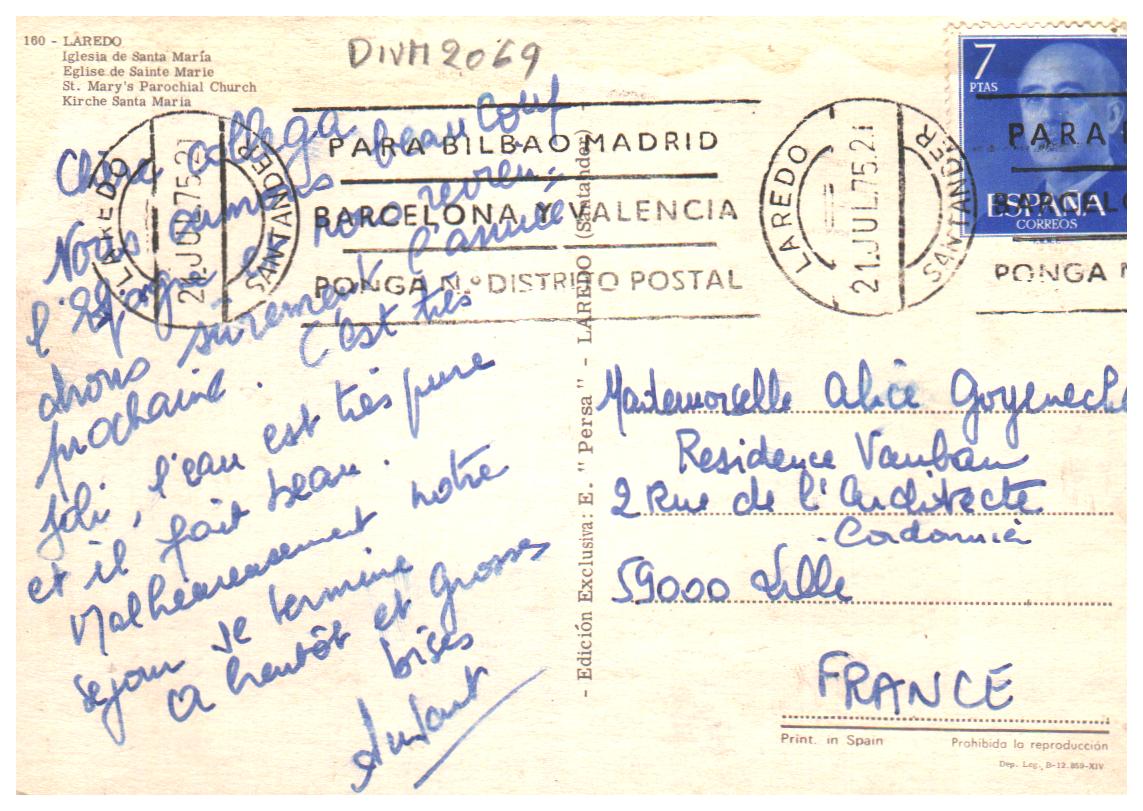 160 - LAREDO
Iglesia de Santa María
Eglise de Sainte Marie
St. Mary's Parochial Church
Kirche Santa Maria
DIVM2069
7
PTAS
ESPAÑA
CORREOS
LAREDO
21.JUL75.21
SANTANDER
PARA BILBAO MADRID
BARCELONA Y VALENCIA
PONGA N.º DISTRITO POSTAL
LAREDO
21.JUL75.21
SANTANDER
PARA
BARCEL
PONGA N
Chère collega
Nous aimons beaucoup
l'Espagne et nous revien-
drons surement l'année
prochaine. C'est très
joli, l'eau est très pure
et il fait beau.
Malheureusement notre
sejour se termine
A bientôt et Grosses
bises
- Edición Exclusiva: E. "Persa" - LAREDO (Santander) -
Mademoiselle Alice Goyeneche
Residence Vauban
2 Rue de l'Architecte
Cordonnier
59000 Lille
FRANCE
Print. in Spain
Prohibida la reproducción
Dep. Leg. B-12.859-XIV